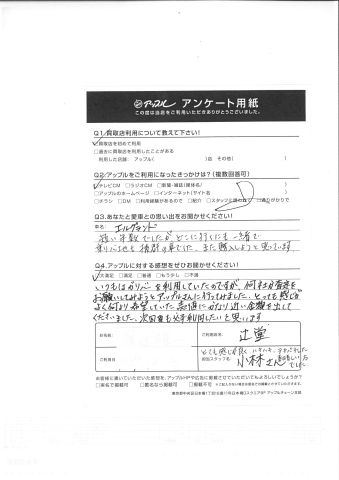 アップル アンケート用紙
この度は当店をご利用いただきありがとうございました。
Q1.買取店利用について教えて下さい!
☑買取店を初めて利用
□過去に買取店を利用したことがある
利用した店舗: アップル( )店 その他( )
Q2.アップルをご利用になったきっかけは?(複数回答可)
☑テレビCM □ラジオCM □新聞・雑誌(媒体名/ )
□アップルのホームページ □インターネット(サイト名 )
□チラシ □DM □利用経験があるので □紹介 □スタッフに誘われて □通りがかりで
Q3.あなたと愛車との思い出をお聞かせください!
車名: エルグランド
短い年数でしたが、どこに行くにも一緒で
乗り心地も抜群の車でした。また購入しようと思っています
Q4.アップルに対する感想をぜひお聞かせください!
☑大満足 □満足 □普通 □もう少し □不満
いつもはガリバーを利用していたのですが、何社か査定を
お願いしてみようとアップルさんに行ってみました。とっても感じも
よく何より希望していた金額にかなり近い金額を出して
くださいました。次回も必ず利用したいと思います
お名前:
ご利用店名: 辻堂
とても感じ良く
ご利用日
担当スタッフ名: 小林さん
お客様に書いていただいた感想を、アップルHPや広告に掲載させていただいてもよろしいでしょうか?
□実名で掲載可 □匿名なら掲載可 □掲載不可